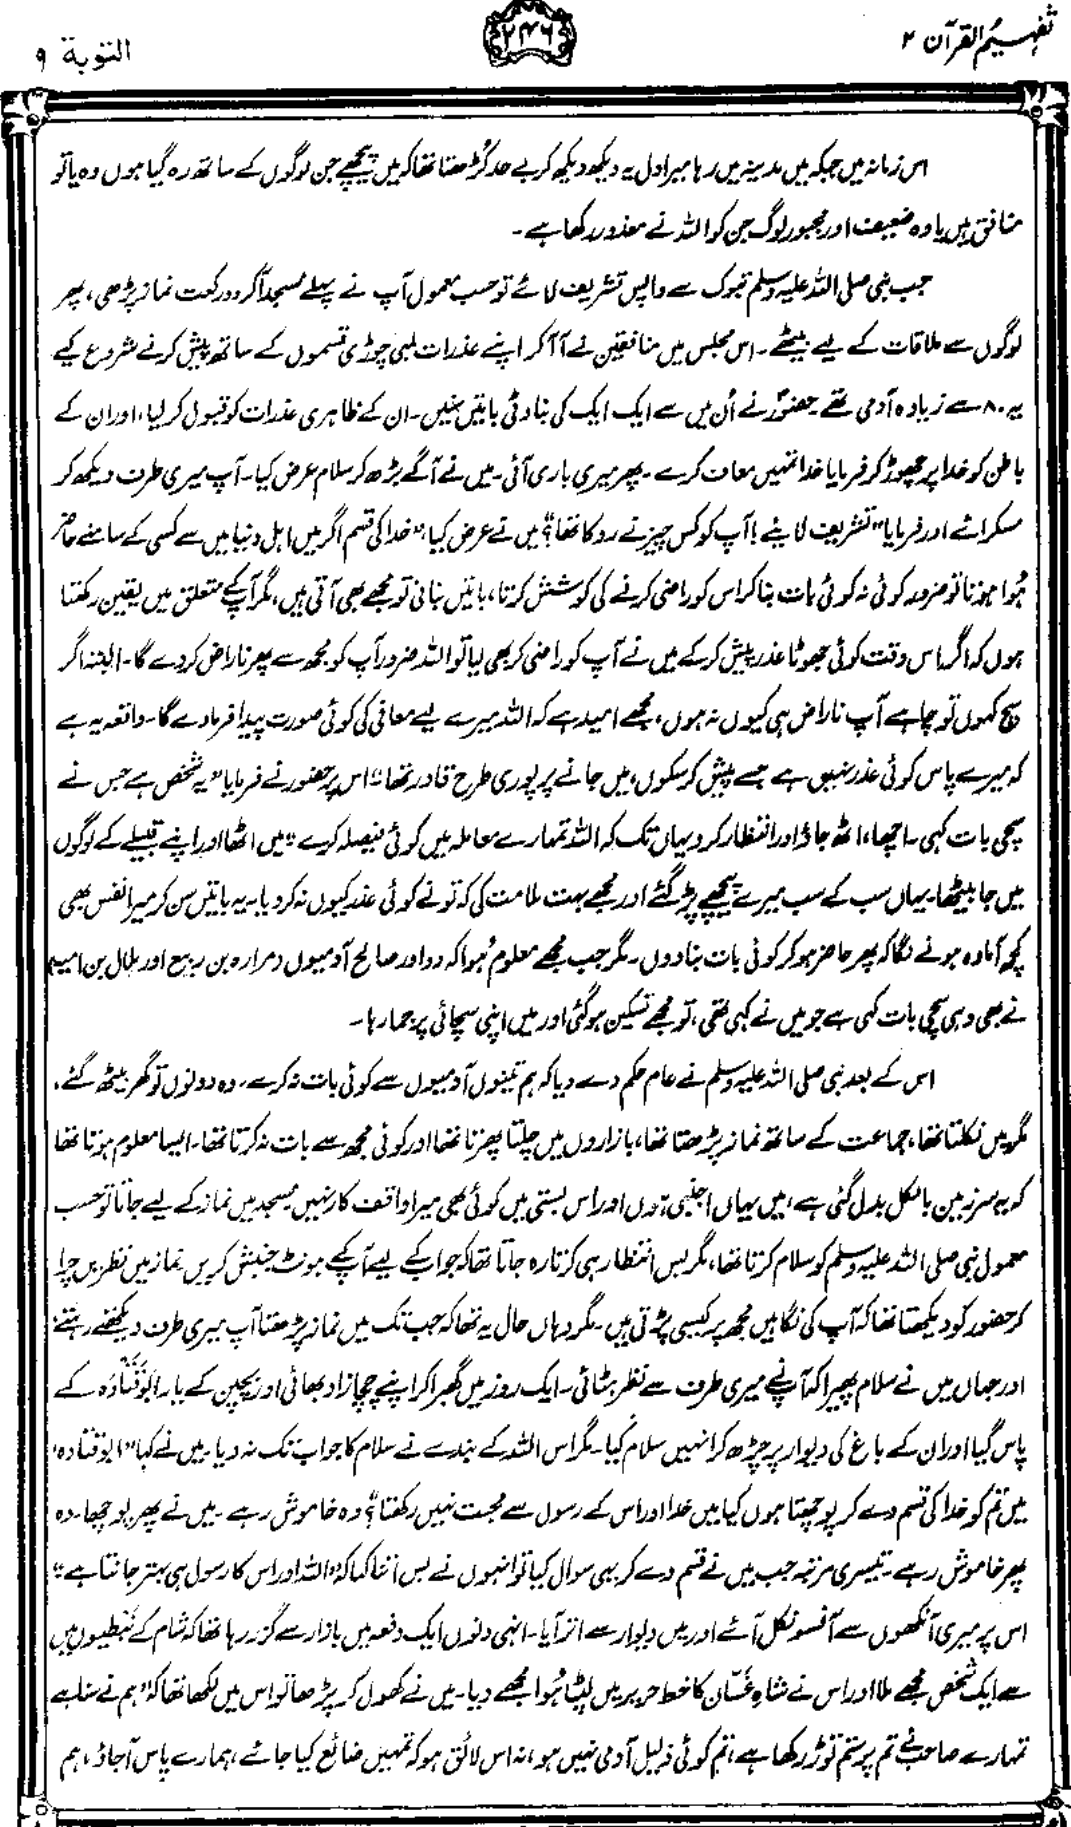 تفہیم القرآن ۲
۲۴۶
التوبة ۹
اس زمانہ میں جبکہ میں مدینہ میں رہا میرا دل یہ دیکھ دیکھ کر بے حد کُڑھتا تھا کہ میں پیچھے جن لوگوں کے ساتھ رہ گیا ہوں وہ یا تو
منافق ہیں یا وہ ضعیف اور مجبور لوگ جن کو اللہ نے معذور رکھا ہے۔
جب نبی صلی اللہ علیہ وسلم تبوک سے واپس تشریف لائے تو حسب معمول آپ نے پہلے مسجد آکر دو رکعت نماز پڑھی، پھر
لوگوں سے ملاقات کے لیے بیٹھے۔ اس مجلس میں منافقین نے آ آ کر اپنے عذرات لمبی چوڑی قسموں کے ساتھ پیش کرنے شروع کیے
یہ ۸۰ سے زیادہ آدمی تھے۔ حضورؐ نے اُن میں سے ایک ایک کی بناوٹی باتیں سنیں۔ ان کے ظاہری عذرات کو قبول کر لیا، اور ان کے
باطن کو خدا پر چھوڑ کر فرمایا خدا تمہیں معاف کرے۔ پھر میری باری آئی۔ میں نے آگے بڑھ کر سلام عرض کیا۔ آپ میری طرف دیکھ کر
مسکرائے اور فرمایا "تشریف لایئے! آپ کو کس چیز نے روکا تھا؟" میں نے عرض کیا، "خدا کی قسم اگر میں اہل دنیا میں سے کسی کے سامنے حاضر
ہُوا ہوتا تو ضرور کوئی نہ کوئی بات بنا کر اس کو راضی کرنے کی کوشش کرتا، باتیں بنانی تو مجھے بھی آتی ہیں، مگر آپ کے متعلق میں یقین رکھتا
ہوں کہ اگر اس وقت کوئی جھوٹا عذر پیش کر کے میں نے آپ کو راضی کر بھی لیا تو اللہ ضرور آپ کو مجھ سے پھر ناراض کر دے گا۔ البتہ اگر
سچ کہوں تو چاہے آپ ناراض ہی کیوں نہ ہوں، مجھے امید ہے کہ اللہ میرے لیے معافی کی کوئی صورت پیدا فرما دے گا۔ واقعہ یہ ہے
کہ میرے پاس کوئی عذر نہیں ہے جسے پیش کر سکوں، میں جانے پر پوری طرح قادر تھا"۔ اس پر حضور نے فرمایا "یہ شخص ہے جس نے
سچی بات کہی۔ اچھا، اٹھ جاؤ اور انتظار کرو یہاں تک کہ اللہ تمہارے معاملہ میں کوئی فیصلہ کرے"۔ میں اٹھا اور اپنے قبیلے کے لوگوں
میں جا بیٹھا۔ یہاں سب کے سب میرے پیچھے پڑ گئے اور مجھے بہت ملامت کی کہ تو نے کوئی عذر کیوں نہ کر دیا۔ یہ باتیں سن کر میرا نفس بھی
کچھ آمادہ ہونے لگا کہ پھر حاضر ہو کر کوئی بات بنا دوں۔ مگر جب مجھے معلوم ہُوا کہ دو اور صالح آدمیوں (مرارہ بن ربیع اور ہلال بن امیہ)
نے بھی وہی سچی بات کہی ہے جو میں نے کہی تھی، تو مجھے تسکین ہو گئی اور میں اپنی سچائی پر جما رہا۔
اس کے بعد نبی صلی اللہ علیہ وسلم نے عام حکم دے دیا کہ ہم تینوں آدمیوں سے کوئی بات نہ کرے۔ وہ دونوں تو گھر بیٹھ گئے،
مگر میں نکلتا تھا، جماعت کے ساتھ نماز پڑھتا تھا، بازاروں میں چلتا پھرتا تھا اور کوئی مجھ سے بات نہ کرتا تھا۔ ایسا معلوم ہوتا تھا
کہ یہ سرزمین بالکل بدل گئی ہے، میں یہاں اجنبی ہوں اور اس بستی میں کوئی بھی میرا واقف کار نہیں۔ مسجد میں نماز کے لیے جاتا تو حسب
معمول نبی صلی اللہ علیہ وسلم کو سلام کرتا تھا، مگر بس انتظار ہی کرتا رہ جاتا تھا کہ جواب کے لیے آپ کے ہونٹ جنبش کریں۔ نماز میں نظریں چرا
کر حضور کو دیکھتا تھا کہ آپ کی نگاہیں مجھ پر کیسی پڑتی ہیں۔ مگر وہاں حال یہ تھا کہ جب تک میں نماز پڑھتا آپ میری طرف دیکھتے رہتے،
اور جہاں میں نے سلام پھیرا کہ آپ نے میری طرف سے نظر ہٹائی۔ ایک روز میں گھبرا کر اپنے چچازاد بھائی اور بچپن کے یار ابو قَتَادَہ کے
پاس گیا اور ان کے باغ کی دیوار پر چڑھ کر انہیں سلام کیا۔ مگر اس اللہ کے بندے نے سلام کا جواب تک نہ دیا۔ میں نے کہا "ابو قتادہ،
میں تم کو خدا کی قسم دے کر پوچھتا ہوں کیا میں خدا اور اس کے رسول سے محبت نہیں رکھتا؟" وہ خاموش رہے۔ میں نے پھر پوچھا۔ وہ
پھر خاموش رہے۔ تیسری مرتبہ جب میں نے قسم دے کر یہی سوال کیا تو انہوں نے بس اتنا کہا کہ "اللہ اور اس کا رسول ہی بہتر جانتا ہے"۔
اس پر میری آنکھوں سے آنسو نکل آئے اور میں دیوار سے اتر آیا۔ انہی دنوں ایک دفعہ میں بازار سے گزر رہا تھا کہ شام کے نَبطیوں میں
سے ایک شخص مجھے ملا اور اس نے شاہِ غَسّان کا خط حریر میں لپٹا ہُوا مجھے دیا۔ میں نے کھول کر پڑھا تو اس میں لکھا تھا کہ "ہم نے سنا ہے
تمہارے صاحب نے تم پر ستم توڑ رکھا ہے، تم کوئی ذلیل آدمی نہیں ہو، نہ اس لائق ہو کہ تمہیں ضائع کیا جائے، ہمارے پاس آجاؤ، ہم